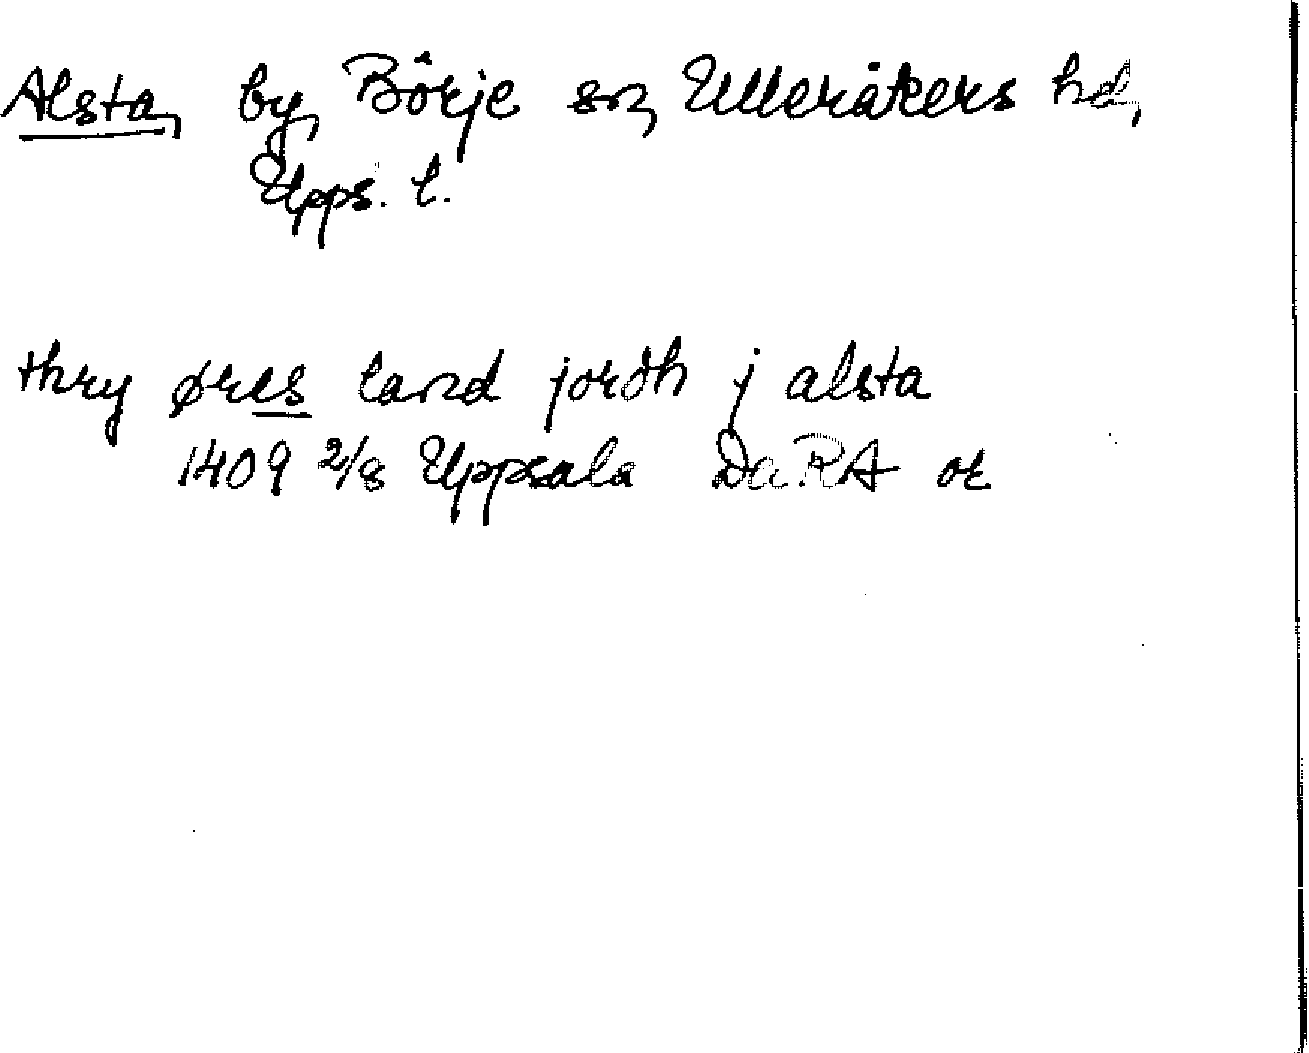 Alsta, by, Börje sn, Ulleråkers hd,
Upps. l.
thry øres land jordh j alsta
1409 2/8 Uppsala DaRA or